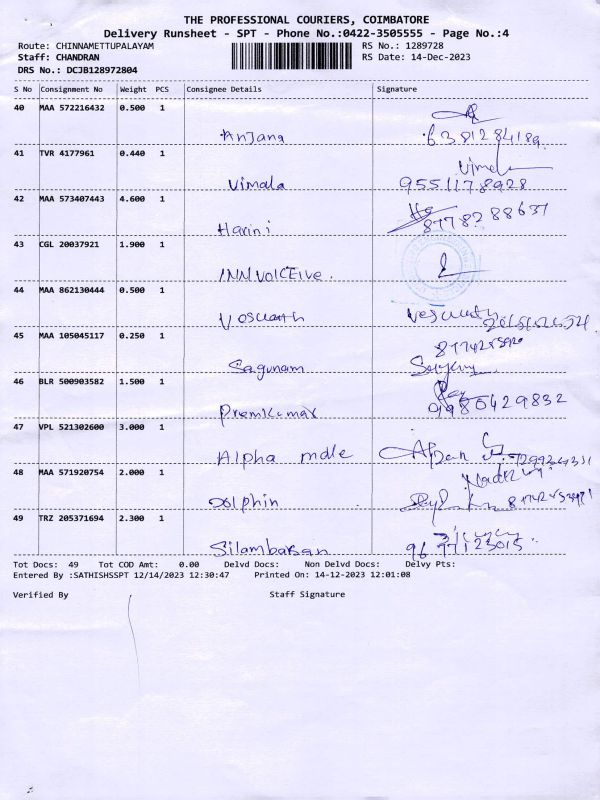 THE PROFESSIONAL COURIERS, COIMBATORE
Delivery Runsheet - SPT - Phone No.:0422-3505555 - Page No.:4
Route: CHINNAMETTUPALAYAM RS No.: 1289728
Staff: CHANDRAN RS Date: 14-Dec-2023
DRS No.: DCJB128972804
S No Consignment No Weight PCS Consignee Details Signature
40 MAA 572216432 0.500 1
Anjana 6381284189
41 TVR 4177961 0.440 1 Vimala
Vimala 9551178928
42 MAA 573407443 4.600 1
Harini 8778288637
43 CGL 20037921 1.900 1
INNVOICEIVE.
44 MAA 862130444 0.500 1
45 MAA 105045117 0.250 1
Sagunam
46 BLR 500903582 1.500 1
Premkumar 9980429832
47 VPL 521302600 3.000 1
Alpha mdle
48 MAA 571920754 2.000 1
Dolphin
49 TRZ 205371694 2.300 1
Silambarsan 9677123015
Tot Docs: 49 Tot COD Amt: 0.00 Delvd Docs: Non Delvd Docs: Delvy Pts:
Entered By :SATHISHSSPT 12/14/2023 12:30:47 Printed On: 14-12-2023 12:01:08
Verified By Staff Signature